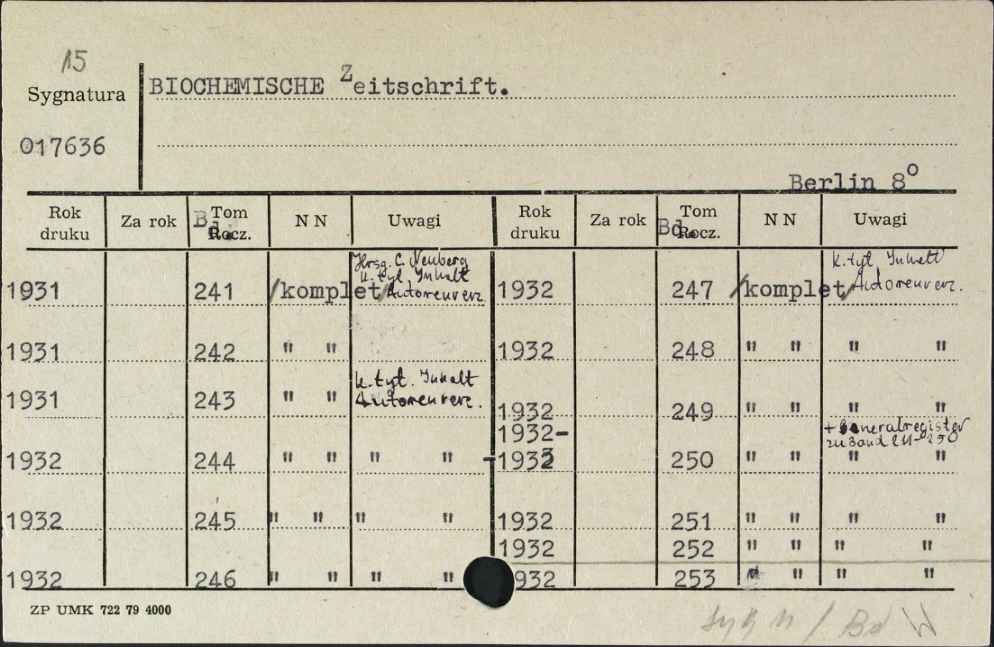 15
Sygnatura
BIOCHEMISCHE Zeitschrift.
017636
Berlin 8°
Rok druku Za rok Bd. Tom Rocz. N N Uwagi Rok druku Za rok Bd. Tom Rocz. N N Uwagi
Hrsg. C. Neuberg
k. tyt. Inhalt
1931 241 /komplet/ Autorenverz.
1931 242 " "
k. tyt. Inhalt
1931 243 " " Autorenverz.
1932 244 " " " "
1932 245 " " " "
1932 246 " " " "
k. tyt. Inhalt
1932 247 /komplet/ Autorenverz.
1932 248 " " " "
1932 249 " " " "
1932- + Generalregister
zu Band 211-250
-1932 250 " " " "
1932 251 " " " "
1932 252 " " " "
932 253 " " " "
ZP UMK 722 79 4000